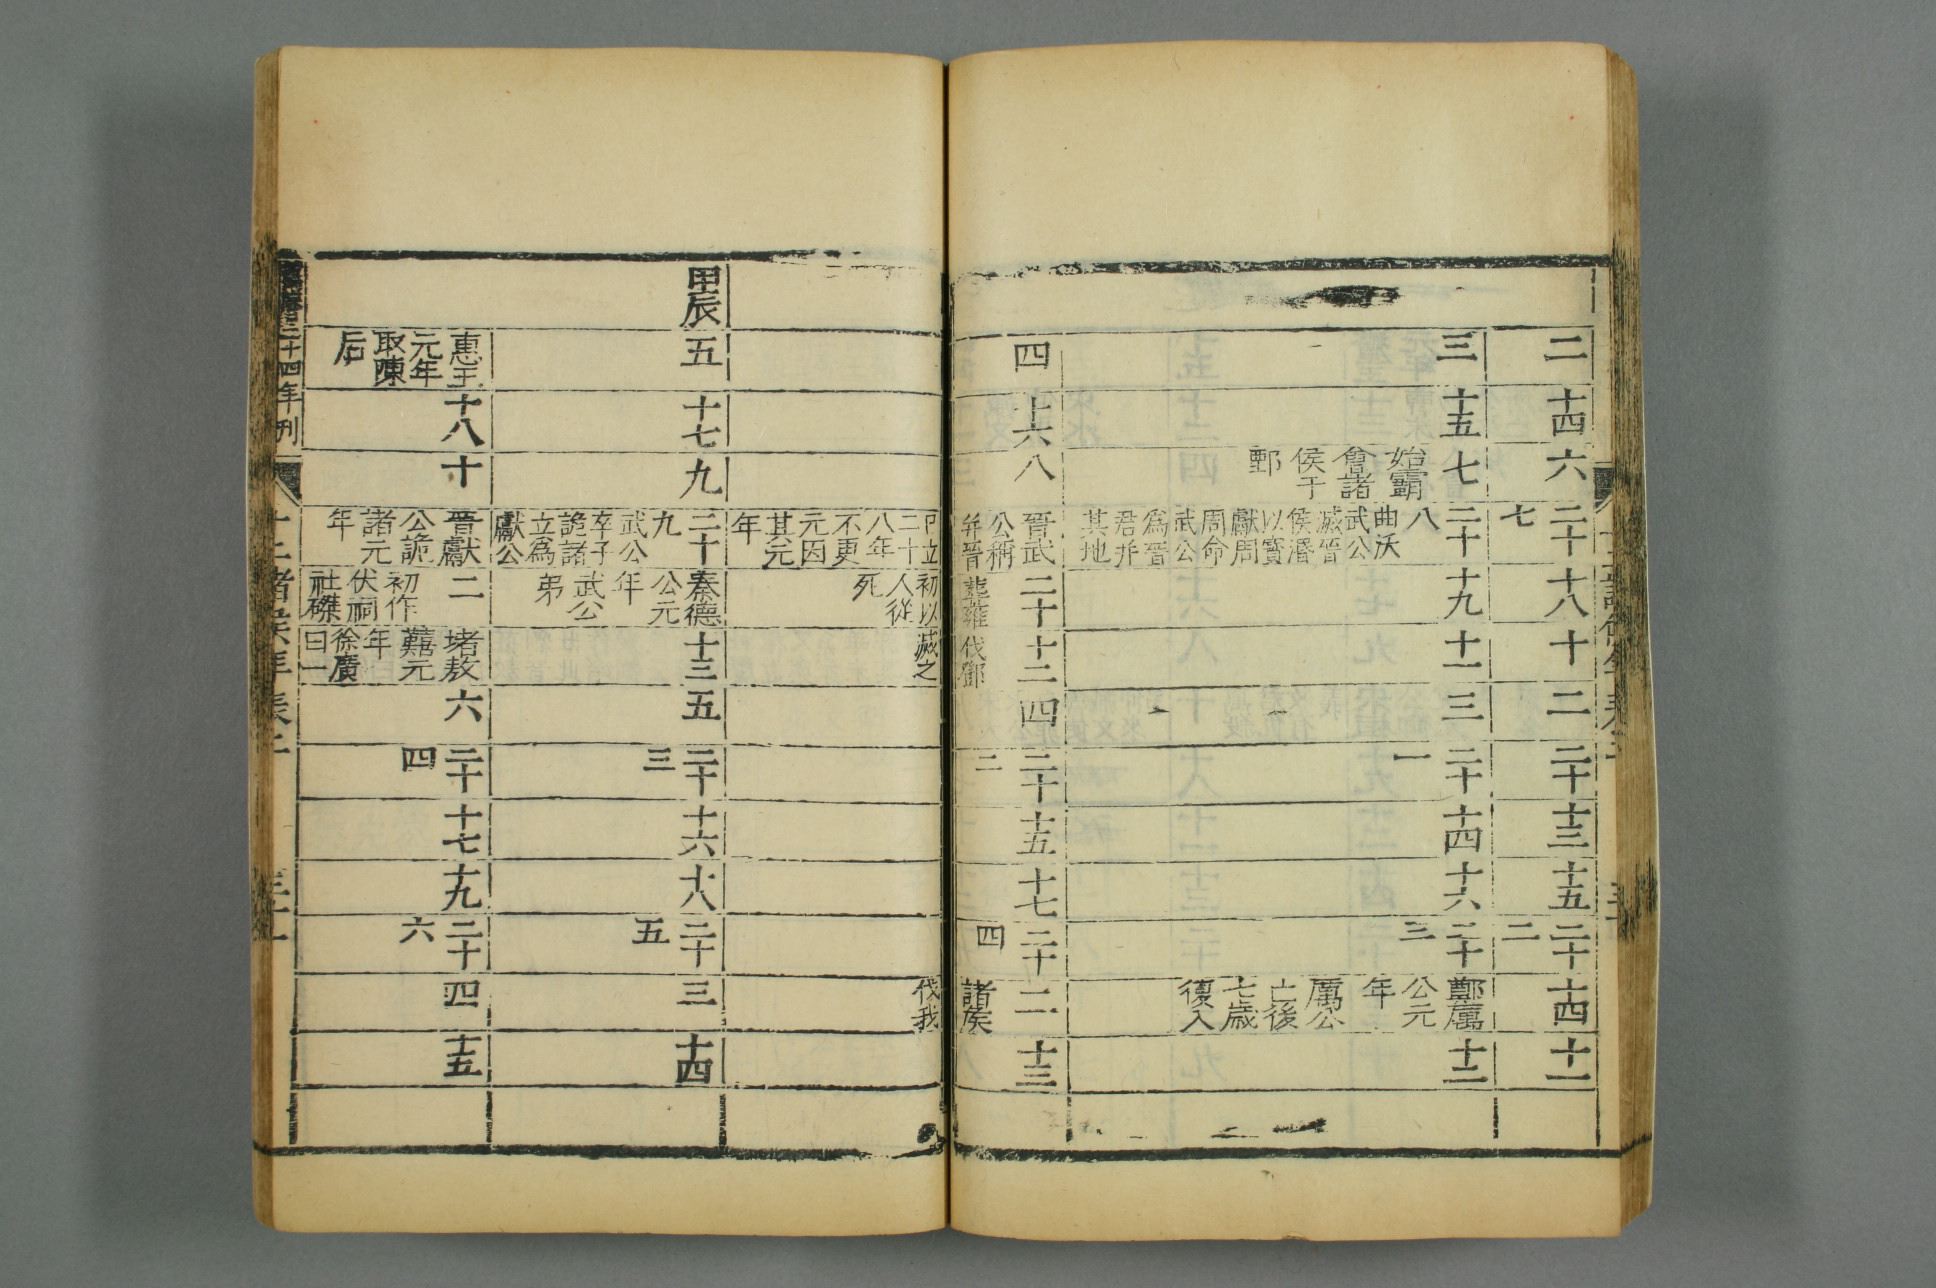 二
十四
六
二十七
十八
十
二
二十
十三
十五
二十二
十四
十一
三
十五
七 始霸會諸侯于鄄
二十八 曲沃武公滅晉侯湣以寶獻周周命武公爲晉君并其地
十九
十一
三
二十一
十四
十六
二十三
鄭厲公元年 厲公亡後七歲復入
十二
四
十六
八
晉武公稱并晉已立二十八年不更元因其元年
二十 葬雍初以人從死
十二 伐鄧滅之
四
二十二
十五
十七
二十四
二 諸侯伐我
十三
甲辰
五
十七
九
二十九 武公卒子詭諸立爲獻公
秦德公元年 武公弟
十三
五
二十三
十六
十八
二十五
三
十四
惠王元年取陳后
十八
十
晉獻公詭諸元年
二 初作伏祠社磔
堵敖囏元年 徐廣曰一
六
二十四
十七
十九
二十六
四
十五
萬曆二十四年刊
十二諸侯年表二
三十一